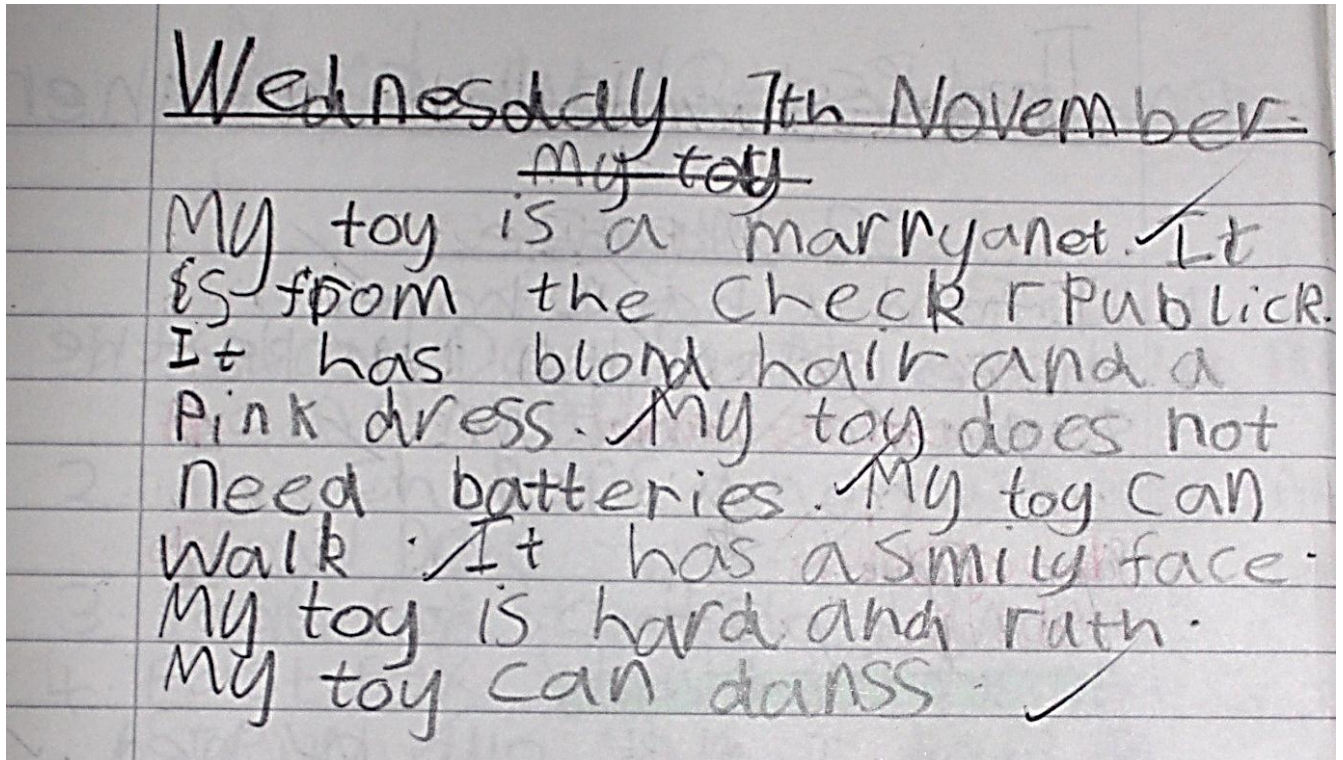 Wednesday 7th November
My toy
My toy is a marryanet. It
is from the Check rPublick.
It has blond hair and a
Pink dress. My toy does not
need batteries. My toy can
walk. It has a smily face.
My toy is hard and ruth.
My toy can danss.